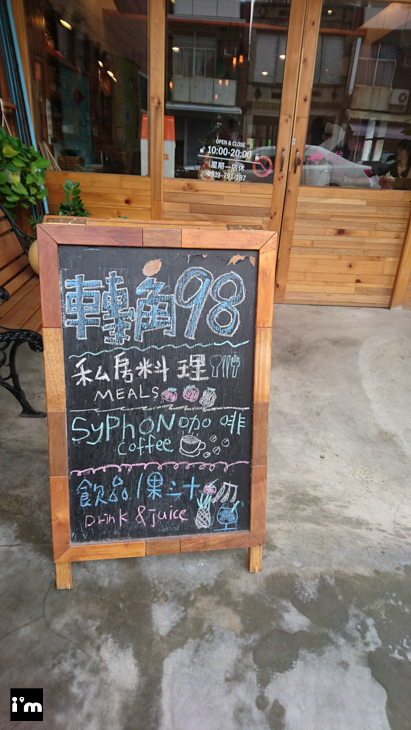 OPEN & CLOSE
10:00-20:00
星期一店休
轉角98
私房料理
MEALS
SyPHON咖啡
Coffee
飲品/果汁
Drink & Juice
i'm